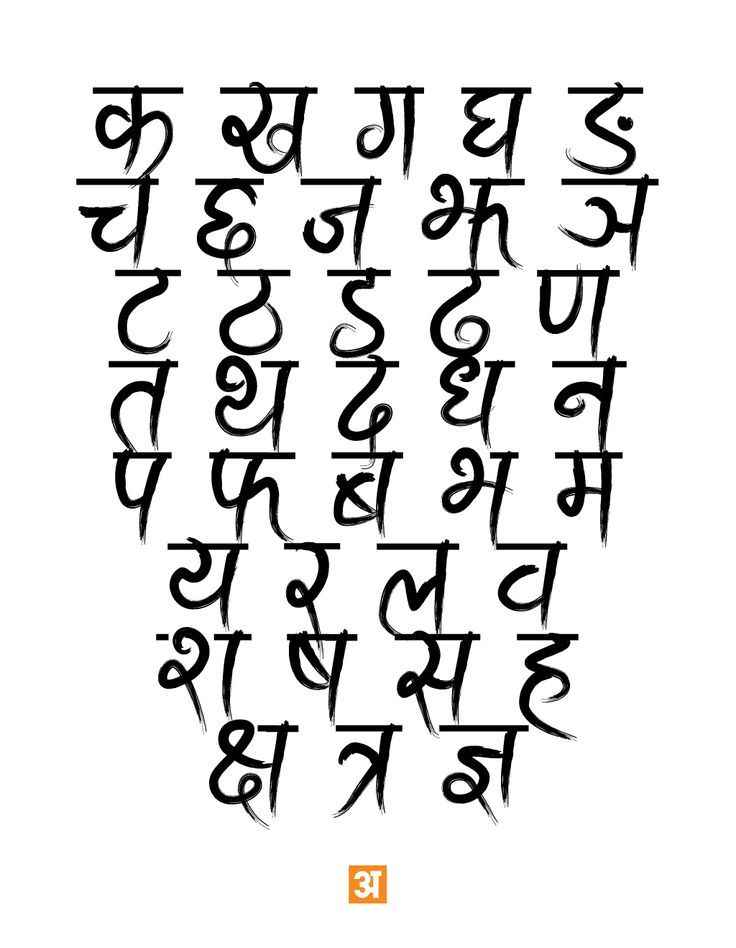 क ख ग घ ङ
च छ ज झ ञ
ट ठ ड ढ ण
त थ द ध न
प फ ब भ म
य र ल व
श ष स ह
क्ष त्र ज्ञ
अ